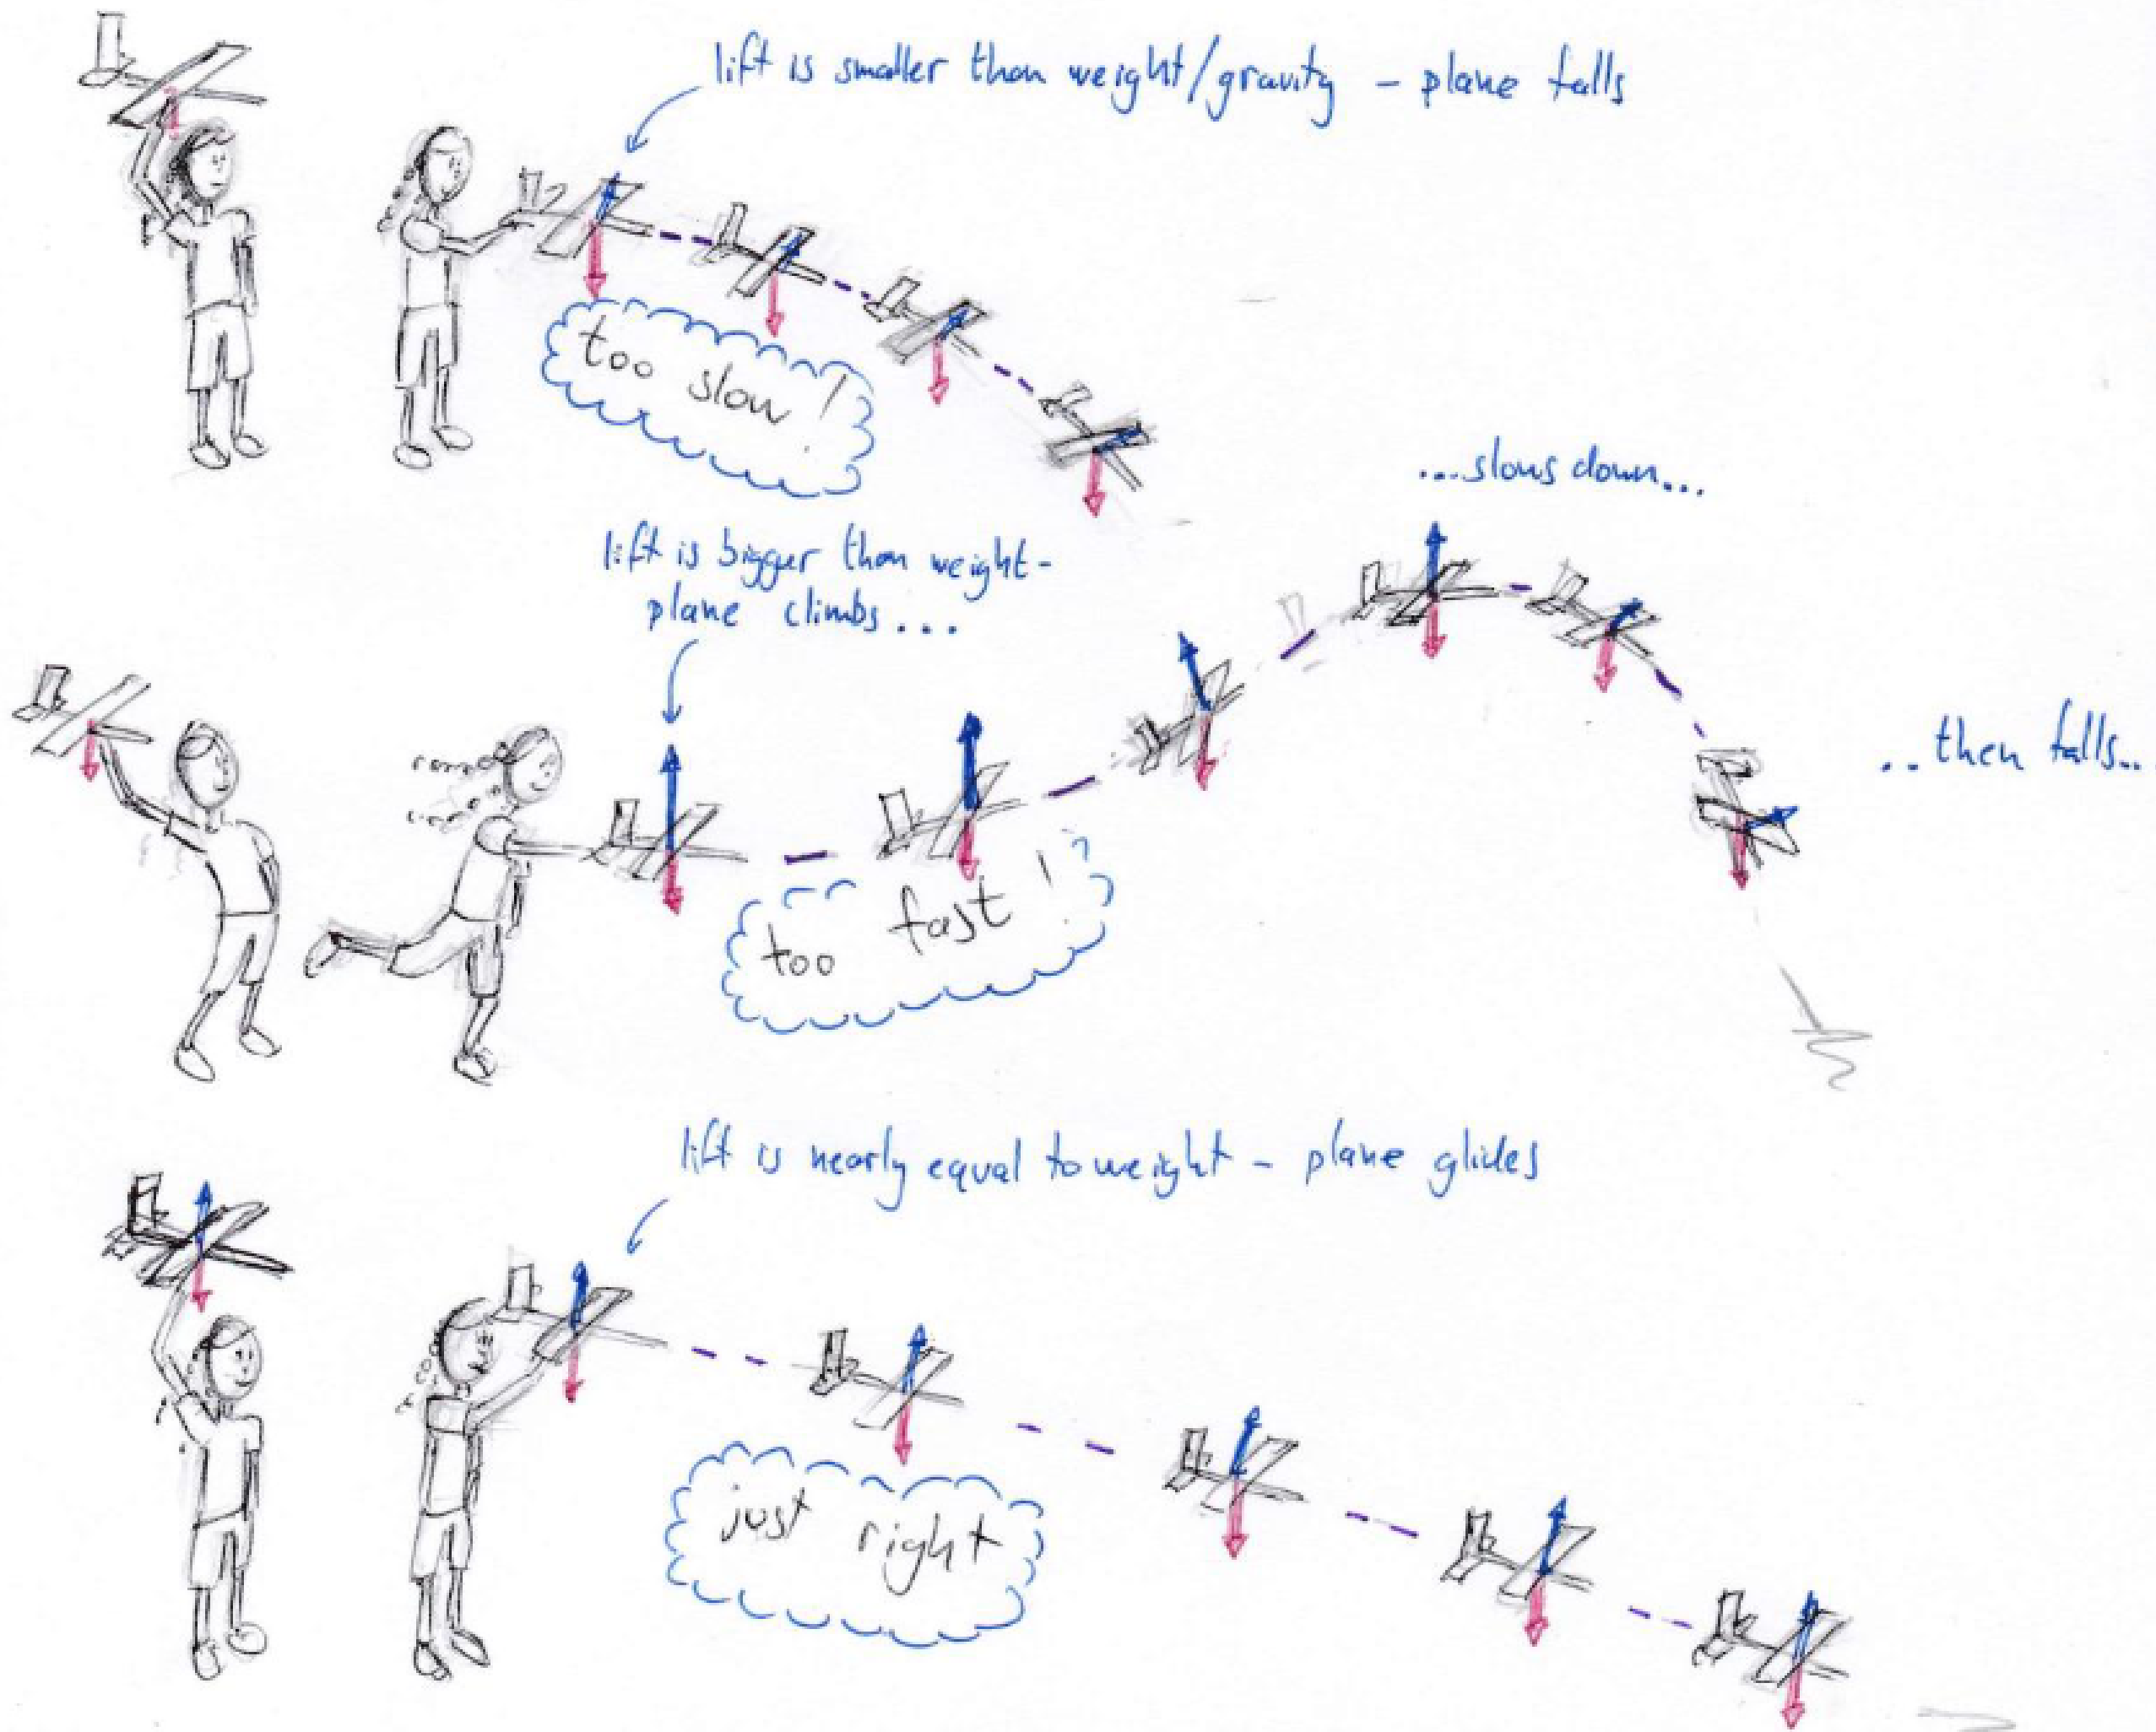 lift is smaller than weight/gravity - plane falls
too slow!
...slows down...
lift is bigger than weight-
plane climbs...
..then falls..
too fast!
lift is nearly equal to weight - plane glides
just right